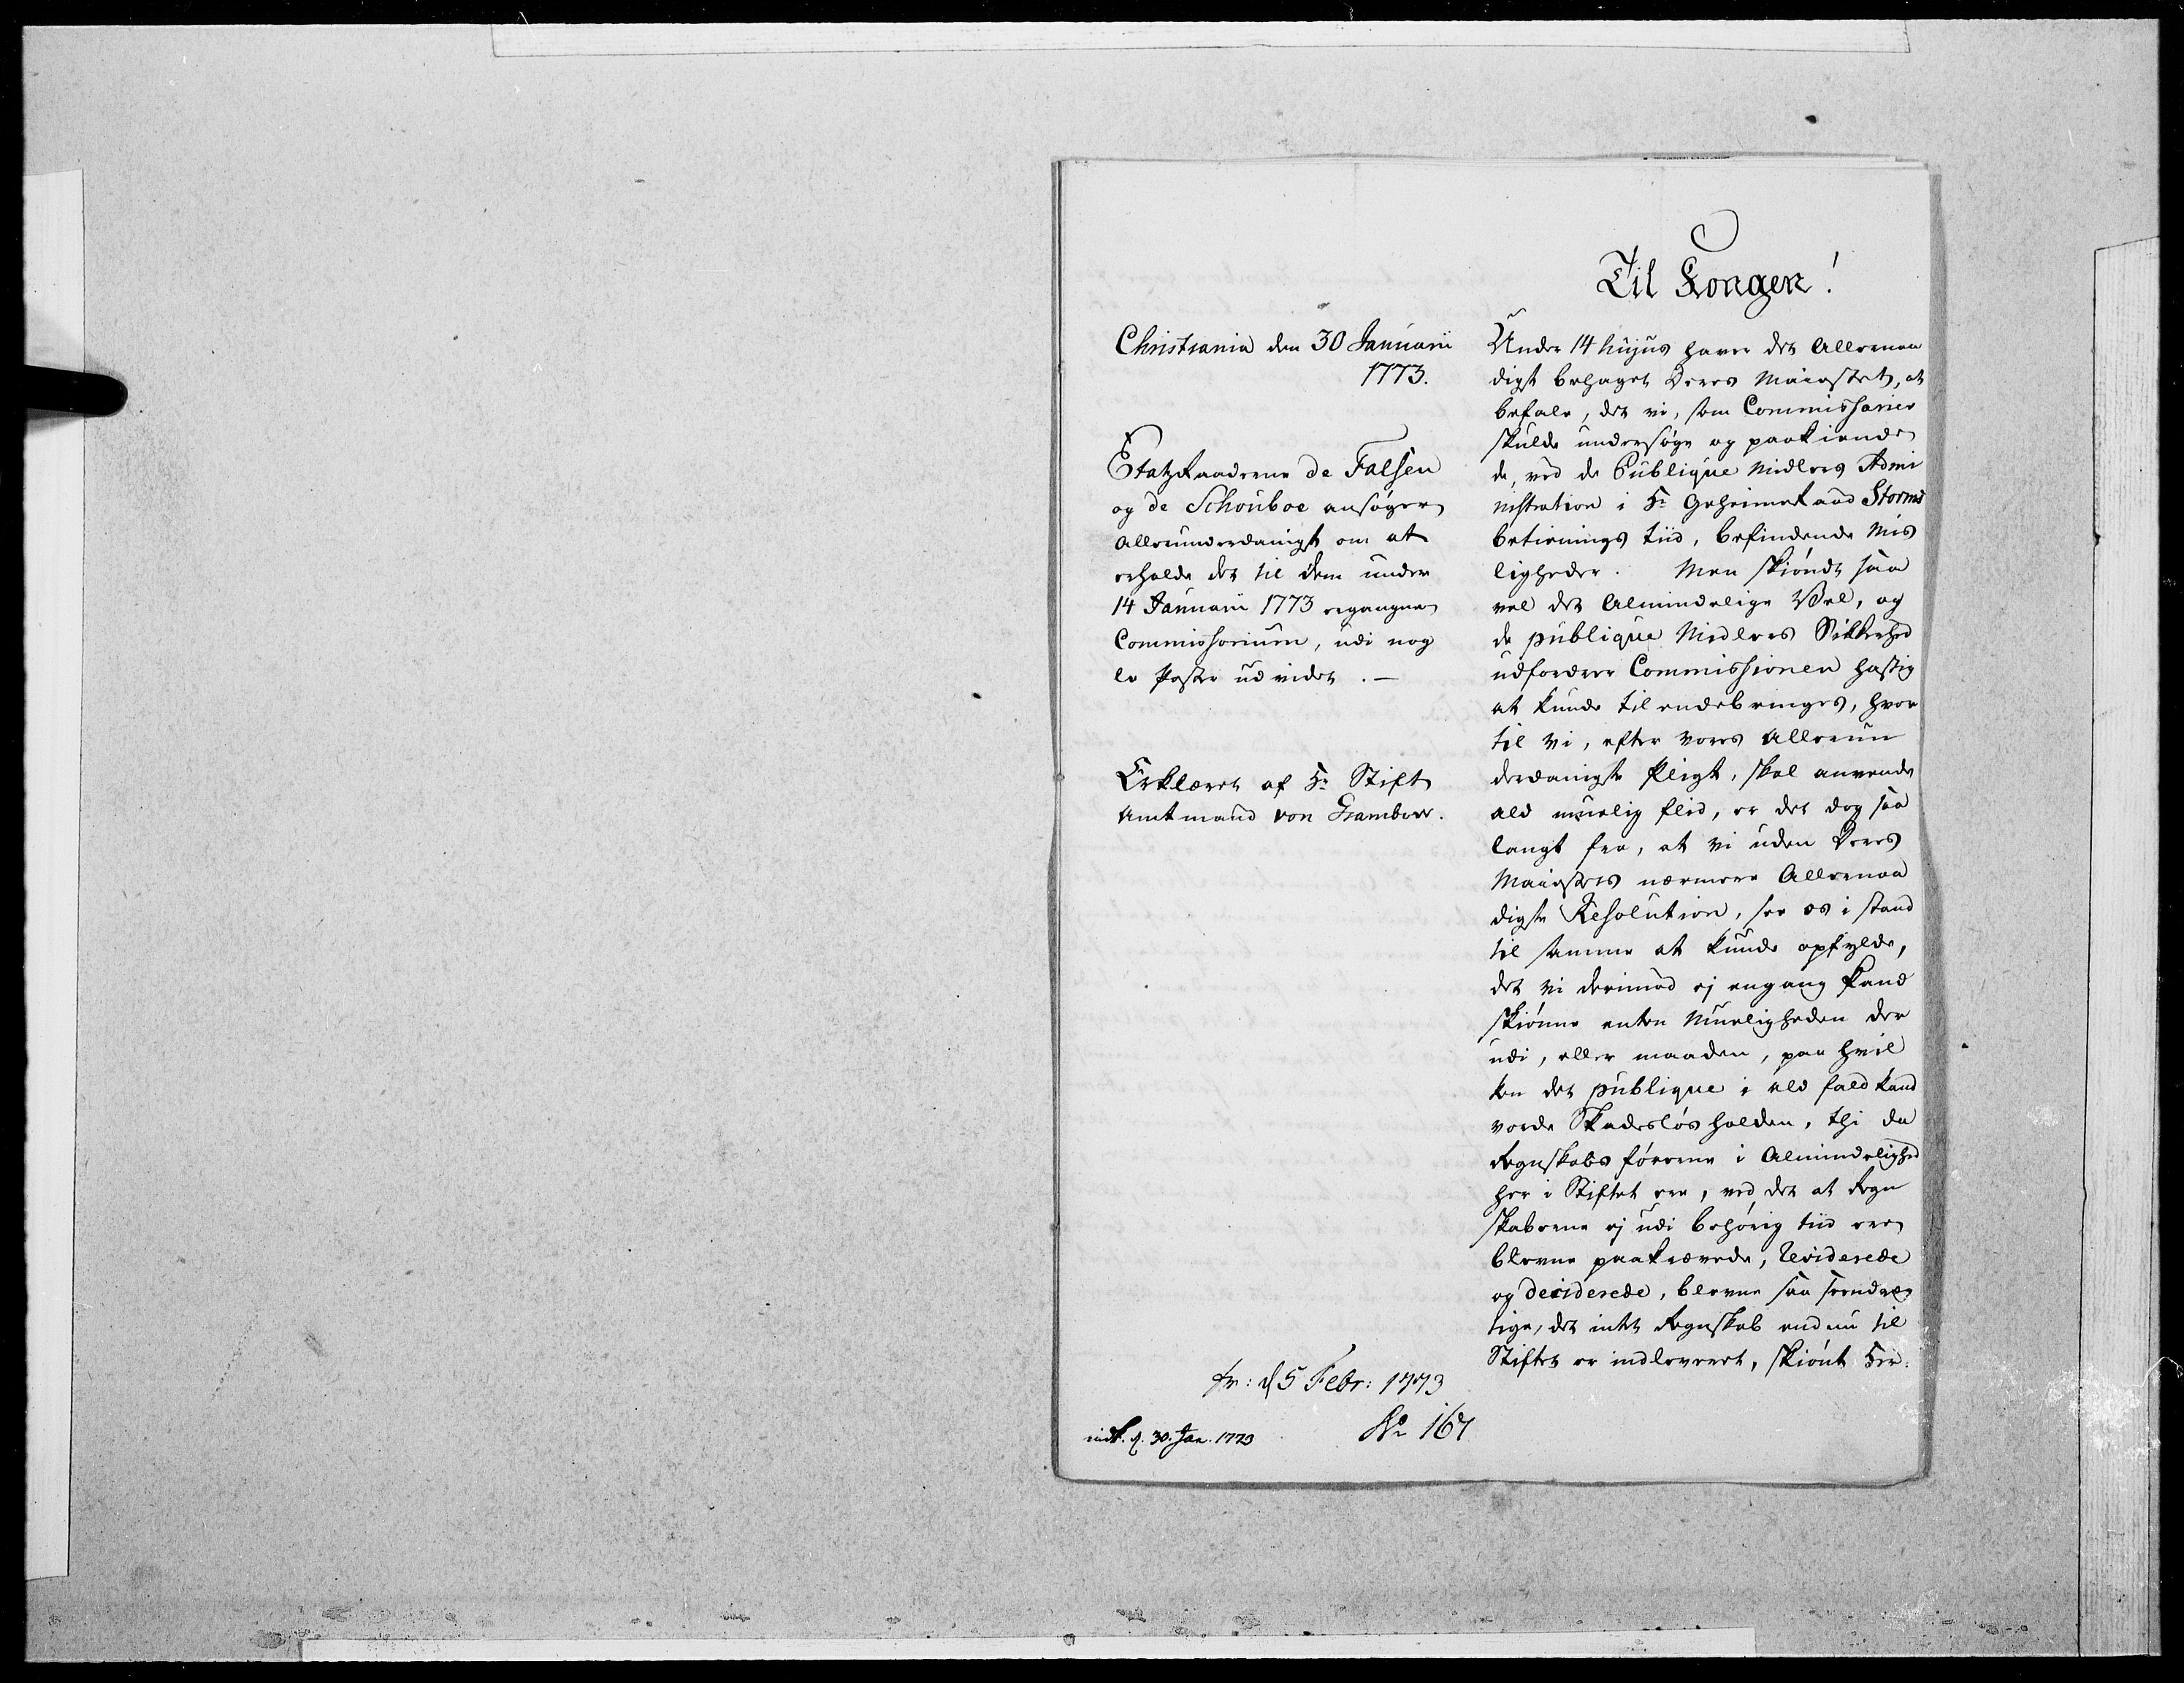 Til Kongen!
Christiania den 30 Januarii
1773.
Etatzraaderne de Falsen
og de Schouboe ansøger
allerunderdanigst om at
erholde det til dem under
14 Januarii 1773 ergangne
Commissorium, udi nog
le Poster udvidet. —
Erklæret af Hr. Stift
amtmand von Grambow.
fr: d 5 Febr: 1773
No 167
indk. d. 30. Jan. 1773
Under 14 hujus haver det Allernaa
digst behaget Deres Maiestet, at
befale, det vi, som Commissarier
skulde undersøge og paakiende
de, ved de Publique Midlers Admi
nistration i Hr. Geheimeraad Storms
betienings tiid, befindende Mis
ligheder. Men skiøndt saa
vel det Almindelige Vel, og
de publique Midlers Sikkerhed
udfordrer Commissionen hastig
at kunde til endebringes, hvor
til vi, efter vores Allerun
derdanigste Pligt, skal anvende
ald muelig flid, er det dog saa
langt fra, at vi uden Deres
Maiestets nærmere Allernaa
digste Resolution, seer os i stand
til samme at kunde opfylde,
det vi derimod ej engang kand
skiønne enten Mueligheden der
udi, eller maaden, paa hvil
ken det publique i ald fald kand
vorde Skadesløsholden, thi da
Regnskabsførerne i Almindelighed
her i Stiftet ere, ved det at Regn
skaberne ej udi behørig tiid ere
blevne paakrævede, reviderede
og deciderede, blevne saa
det intet Regnskab endnu til
Stiftet er indleveret, skiønt Her: